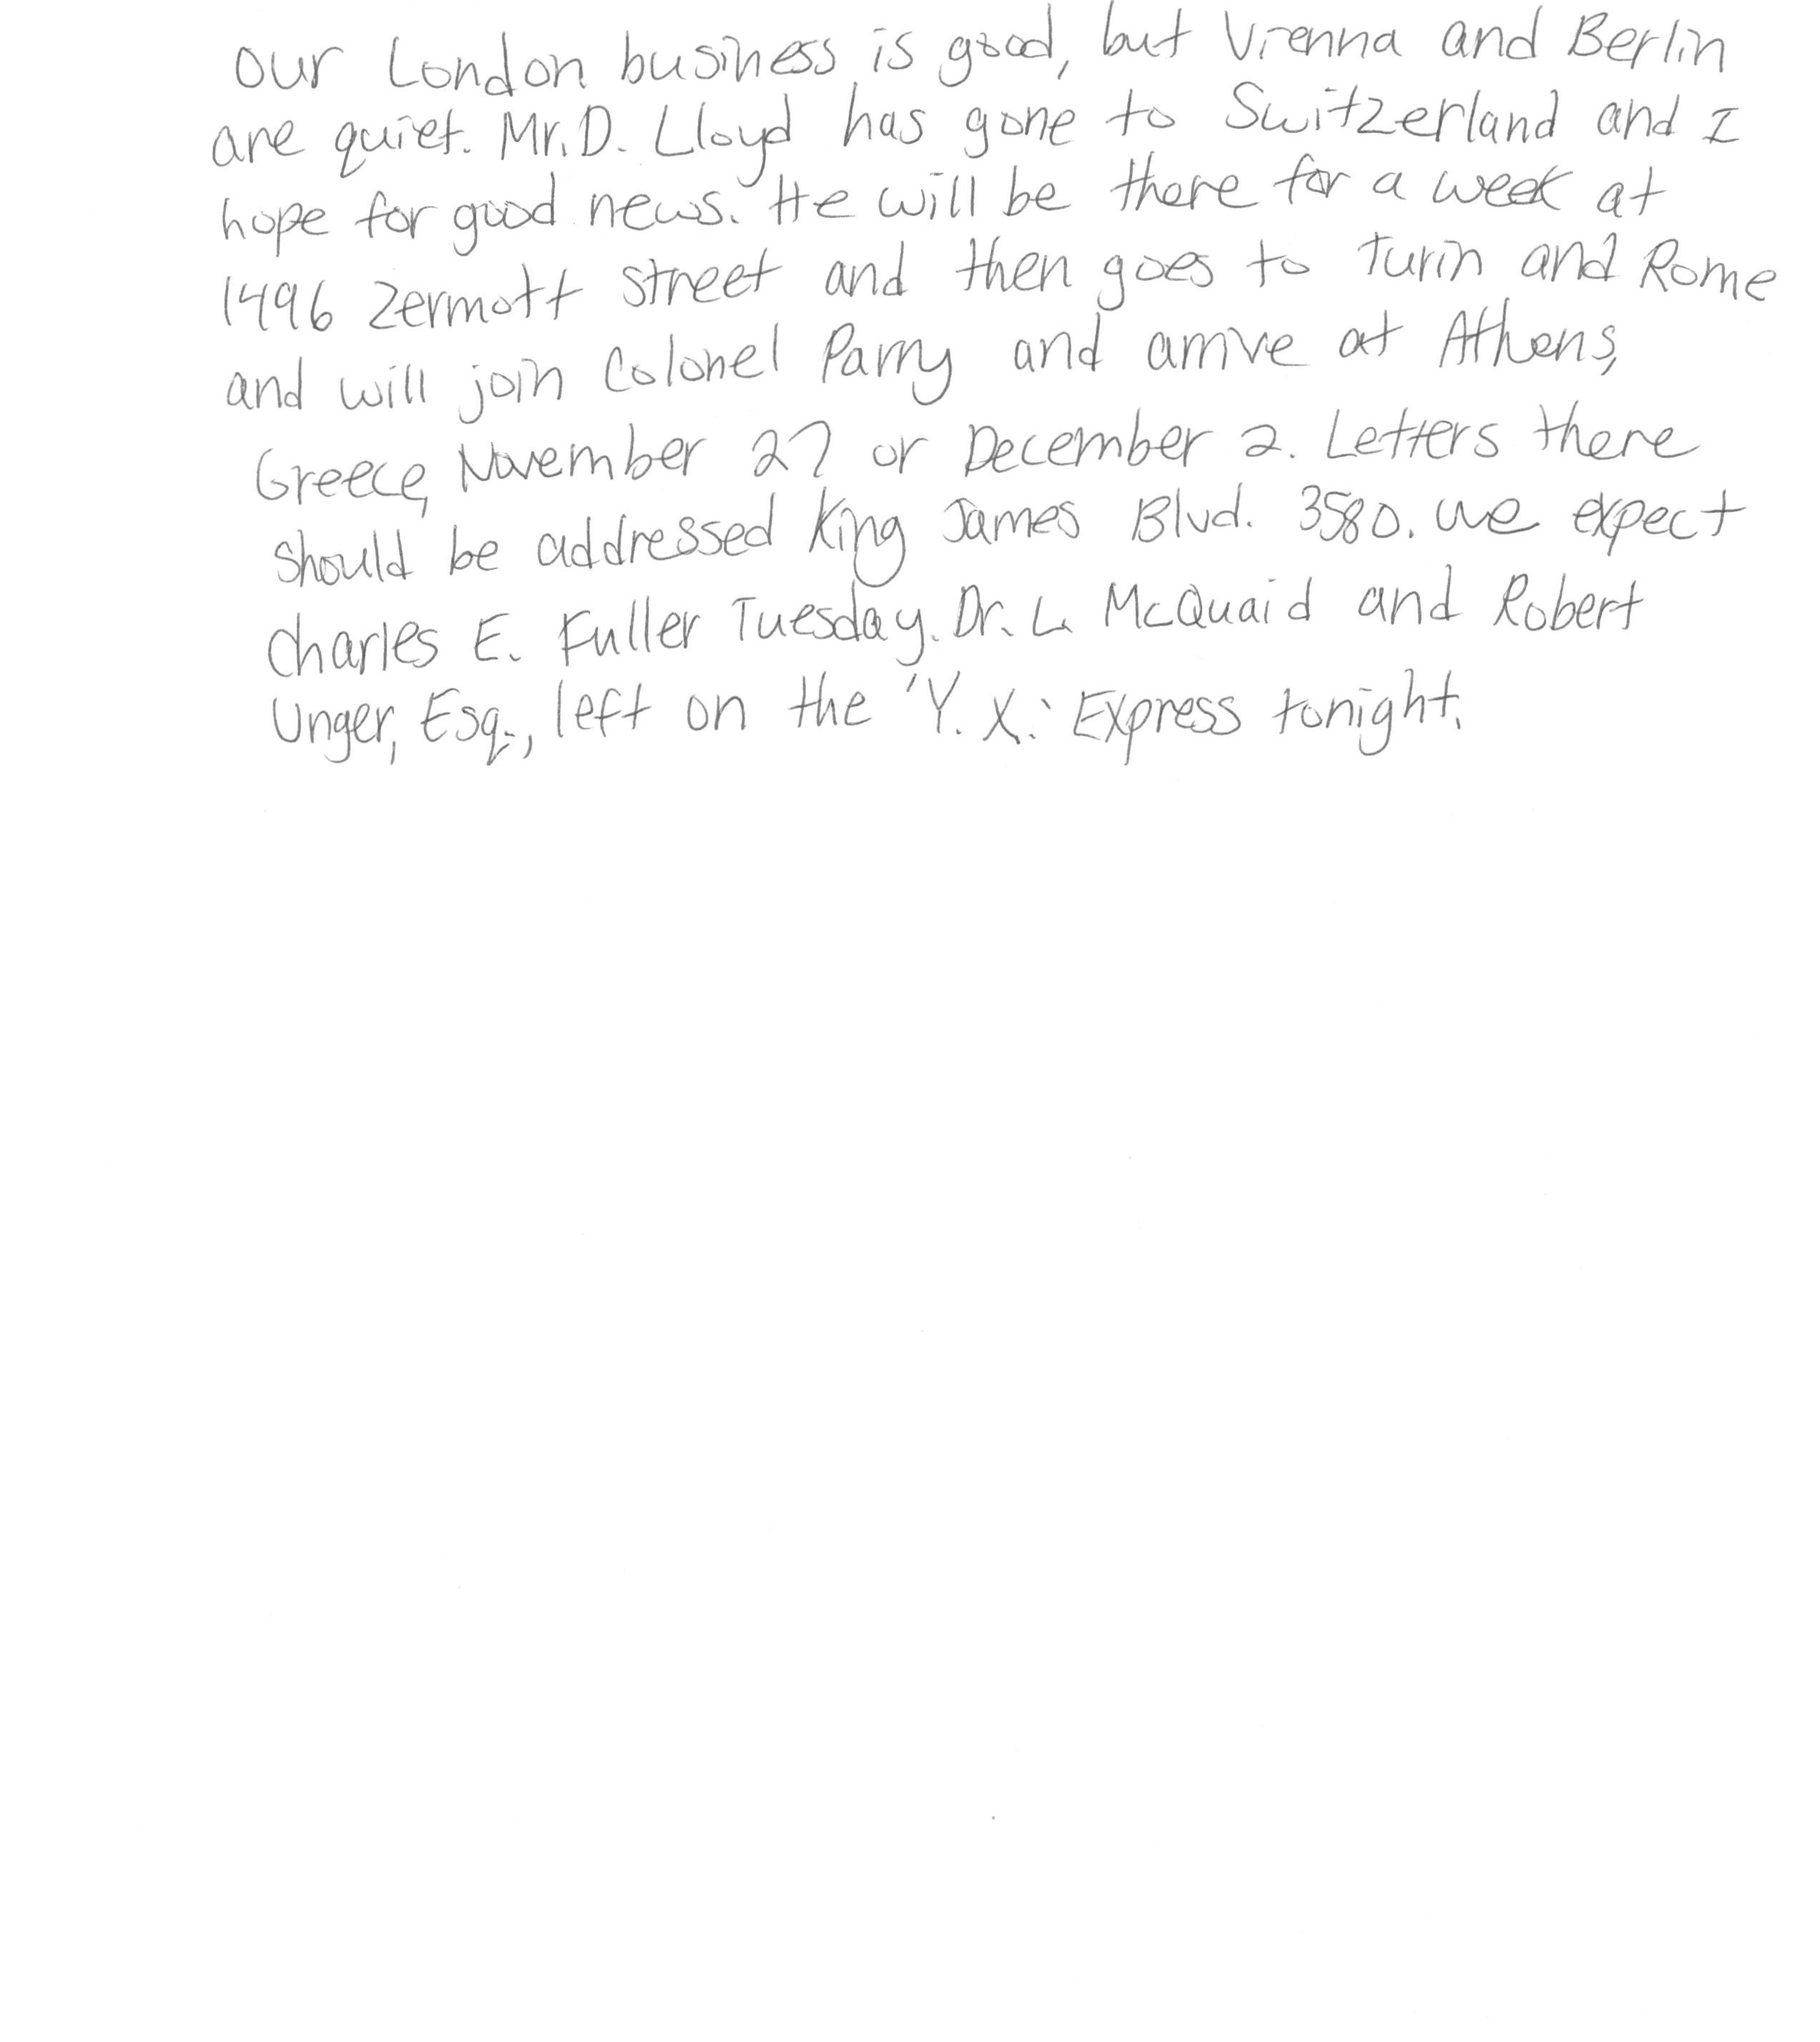 Our London business is good, but Vienna and Berlin
are quiet. Mr. D. Lloyd has gone to Switzerland and I
hope for good news. He will be there for a week at
1496 Zermott street and then goes to Turin and Rome
and will join Colonel Parry and arrive at Athens,
Greece, November 27 or December 2. Letters there
should be addressed King James Blvd. 3580. We expect
Charles E. Fuller Tuesday. Dr. L. McQuaid and Robert
Unger, Esq., left on the 'Y. X.' Express tonight.